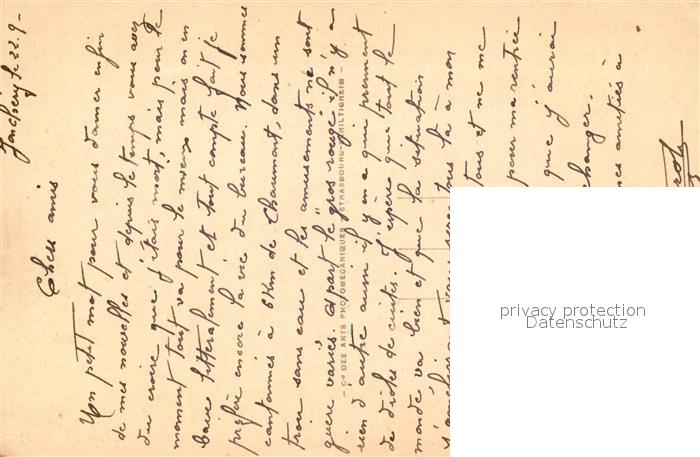 Jonchery le 22.9-
Chers amis
Un petit mot pour vous donner enfin
de mes nouvelles et depuis le temps vous avez
du croire que j'étais mort, mais pour le
moment tout va pour le mieux mais on en
bave littéralement et tout compte fait je
préfère encore la vie du bureau. Nous sommes
cantonnés à 6 Km de Chaumont, dans un
trou sans eau et les amusements ne sont
guère variés. A part le "gros rouge" il n'y a
rien d'autre aussi il y en a que prennent
de drôles de cuites. J'espère que tout le
monde va bien et que la situation
vous tous là à mon
tous et ne me
pour ma rentrée
que j'aurai
changer.
mes amitiés à
- Cie DES ARTS PHOTOMECANIQUES - STRASBOURG-SCHILTIGHEIM -
privacy protection
Datenschutz